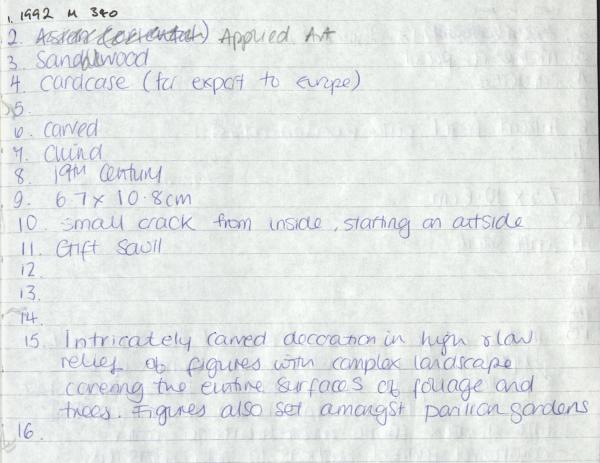 1. 1992 M 340
2. Applied Art
3. Sandalwood
4. Cardcase (for export to europe)
5.
6. Carved
7. China
8. 19th Century
9. 6.7 x 10.8cm
10. small crack from inside, starting on outside
11. Gift Savill
12.
13.
14.
15. Intricately carved decoration in high & low
relief of figures with complex landscape
covering the entire surfaces of foliage and
trees. Figures also set amongst pavilion gardens
16.